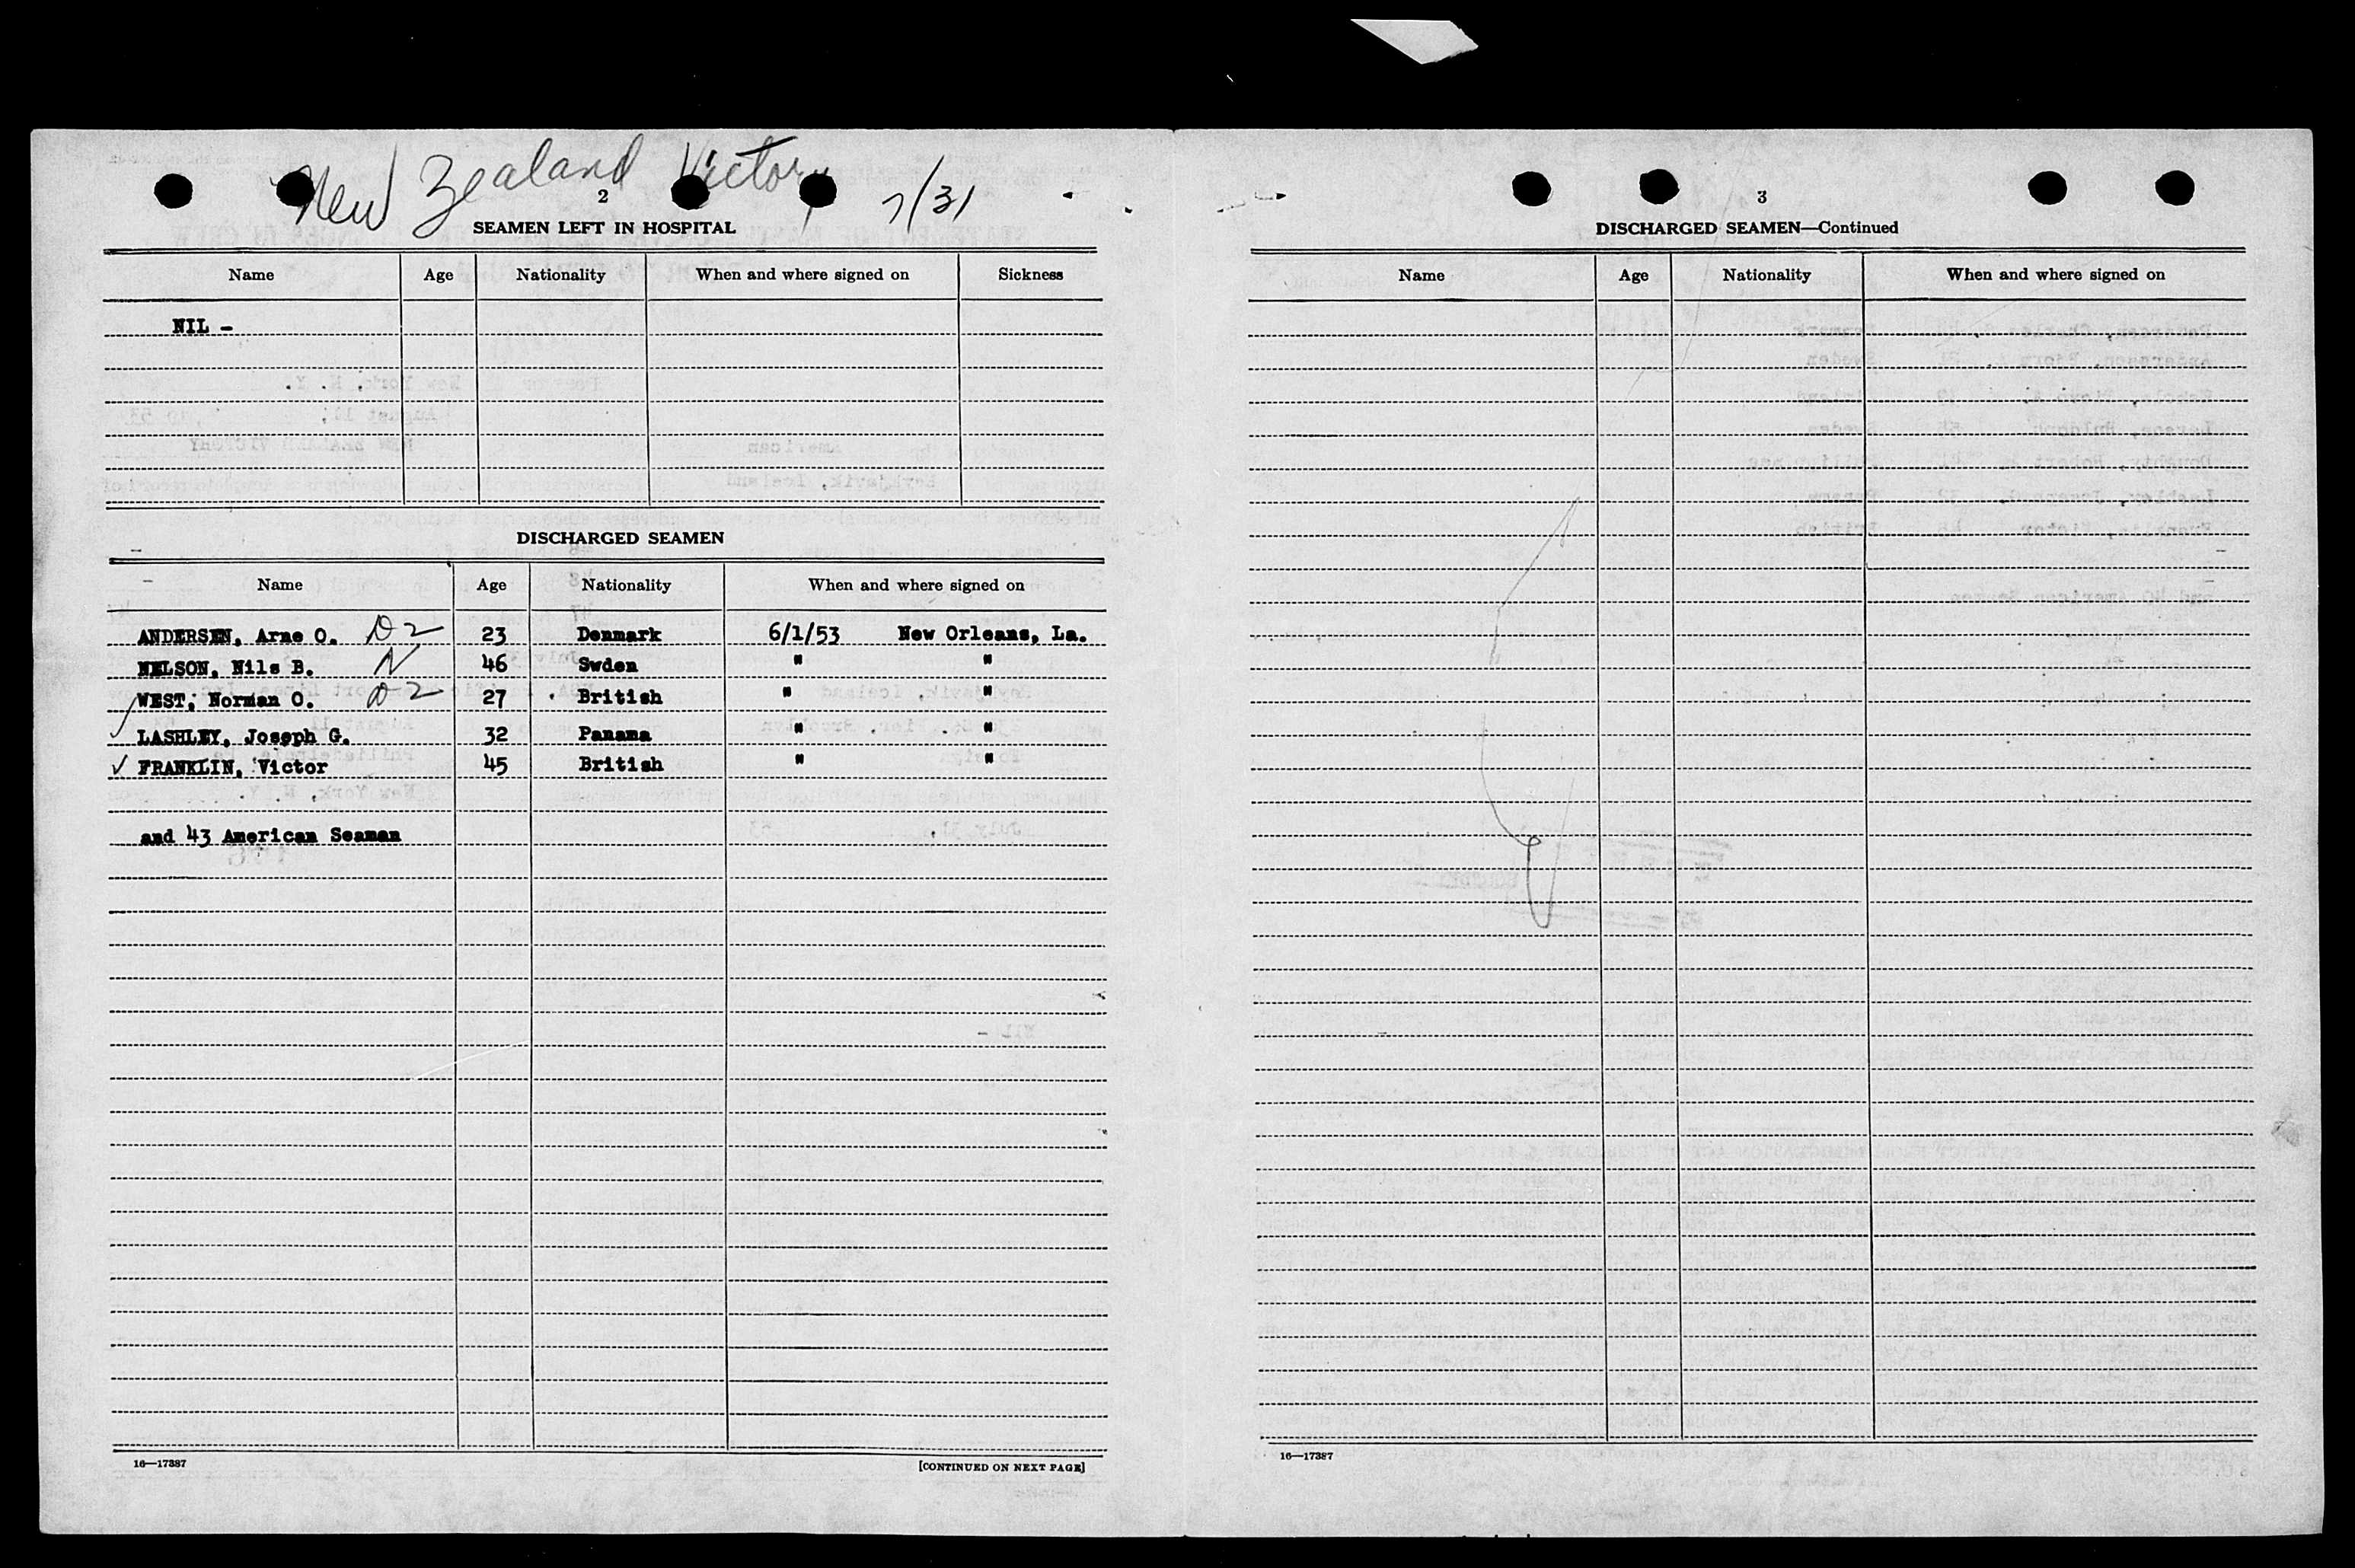 New Zealand Victory 7/31
2
SEAMEN LEFT IN HOSPITAL
Name Age Nationality When and where signed on Sickness
NIL -
DISCHARGED SEAMEN
Name Age Nationality When and where signed on
ANDERSEN, Arne O. D2 23 Denmark 6/1/53 New Orleans, La.
NELSON, Nils B. N 46 Swden " "
WEST, Norman O. D2 27 British " "
LASHLEY, Joseph G. 32 Panama " "
✓ FRANKLIN, Victor 45 British " "
and 43 American Seaman
16—17387 [CONTINUED ON NEXT PAGE]
3
DISCHARGED SEAMEN—Continued
Name Age Nationality When and where signed on
16—17387